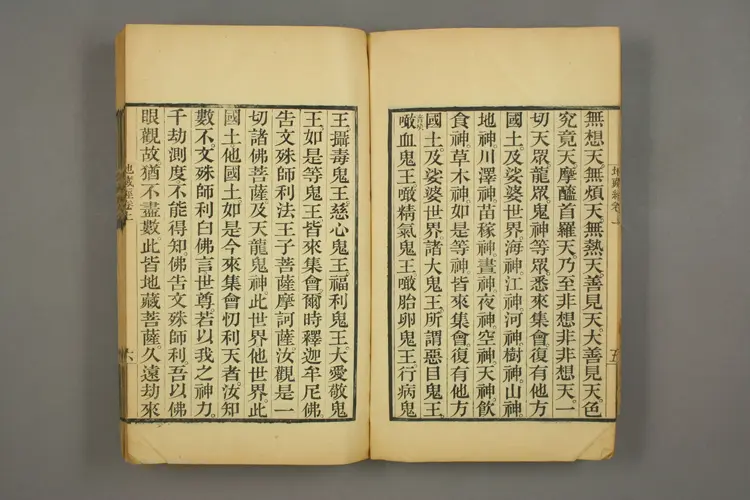 無想天。無煩天。無熱天。善見天。大善見天。色
究竟天。摩醯首羅天。乃至非想非非想天。一
切天眾。龍眾。鬼神等眾。悉來集會。復有他方
國土。及娑婆世界。海神。江神。河神。樹神。山神。
地神。川澤神。苗稼神。晝神。夜神。空神。天神。飲
食神。草木神。如是等神。皆來集會。復有他方
國土。及娑婆世界。諸大鬼王。所謂惡目鬼王。
噉血鬼王。噉精氣鬼王。噉胎卵鬼王。行病鬼
五
王。攝毒鬼王。慈心鬼王。福利鬼王。大愛敬鬼
王。如是等鬼王。皆來集會。爾時釋迦牟尼佛。
告文殊師利法王子菩薩摩訶薩。汝觀是一
切諸佛菩薩及天龍鬼神。此世界他世界。此
國土他國土。如是今來集會忉利天者。汝知
數不。文殊師利白佛言。世尊。若以我之神力。
千劫測度。不能得知。佛告文殊師利。吾以佛
眼觀故。猶不盡數。此皆地藏菩薩。久遠劫來
地藏經卷上
六